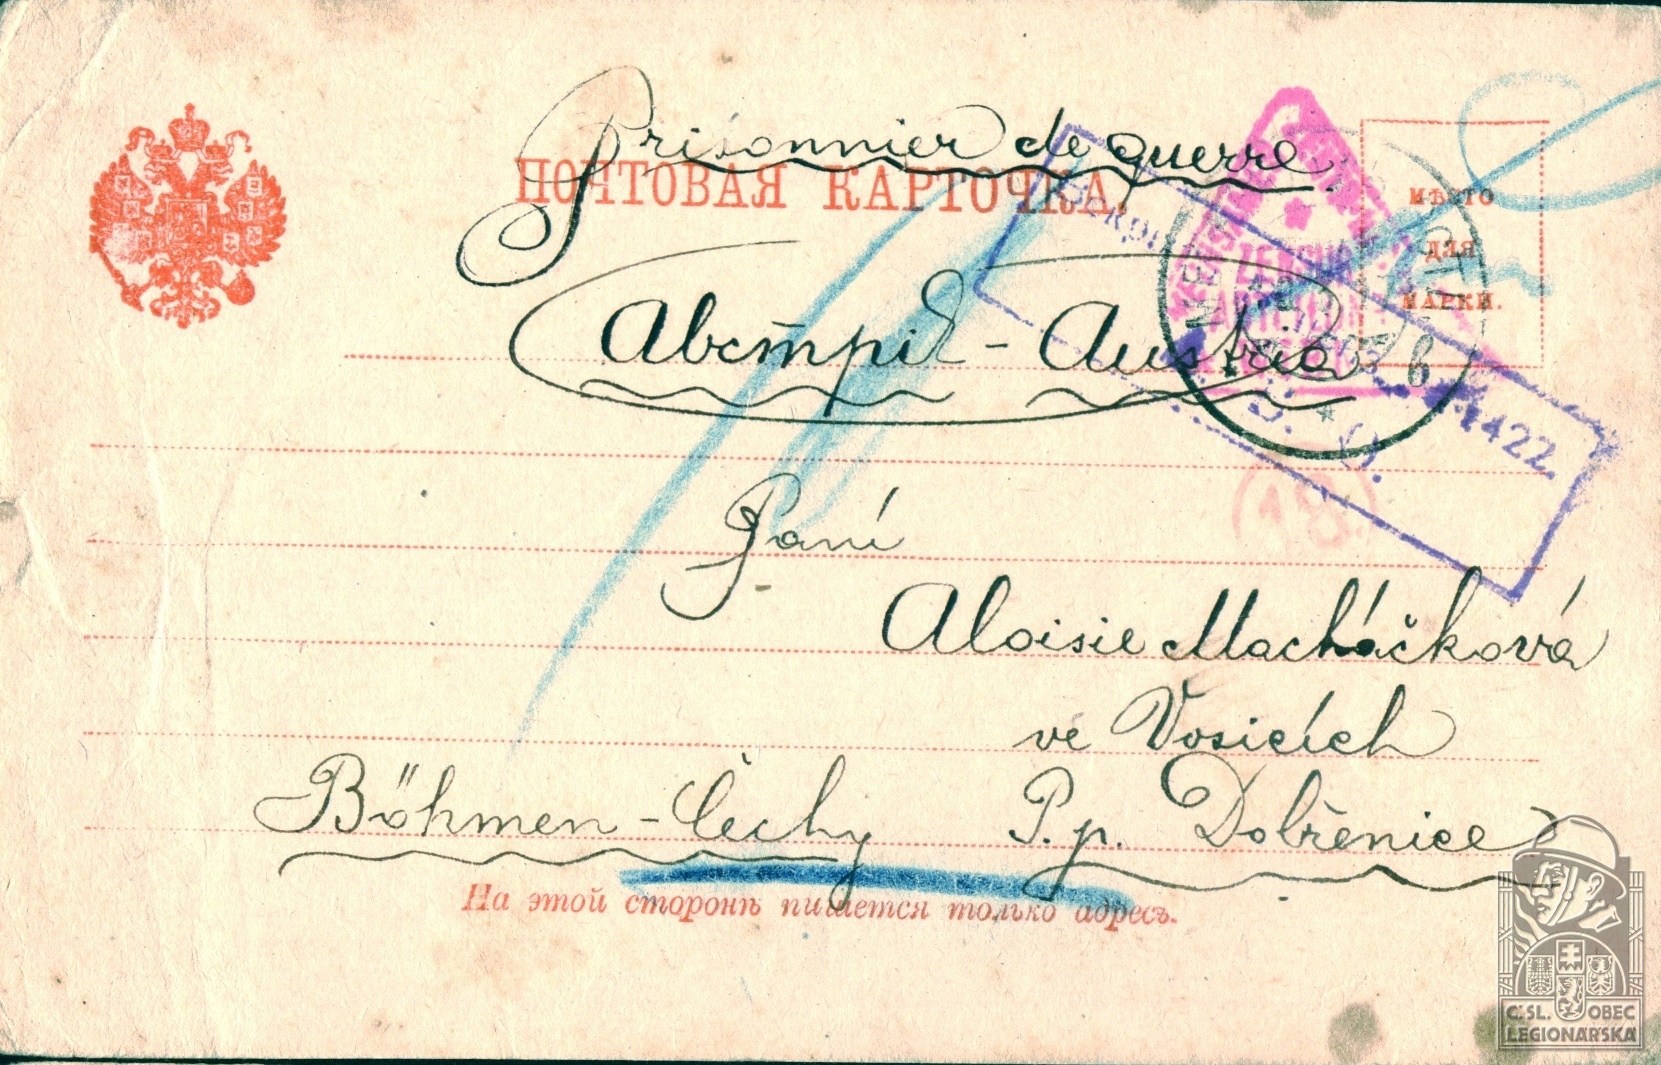 Prisonnier de guerre.
ПОЧТОВАЯ КАРТОЧКА.
МѢСТО
ДЛЯ
МАРКИ.
Австрія - Austria
1422.
18
Paní
Aloisie Macháčková
ve Vosicích
Böhmen - Čechy P.p. Dobřenice
На этой сторонѣ пишется только адресъ.
Č.SL. OBEC
LEGIONÁŘSKÁ